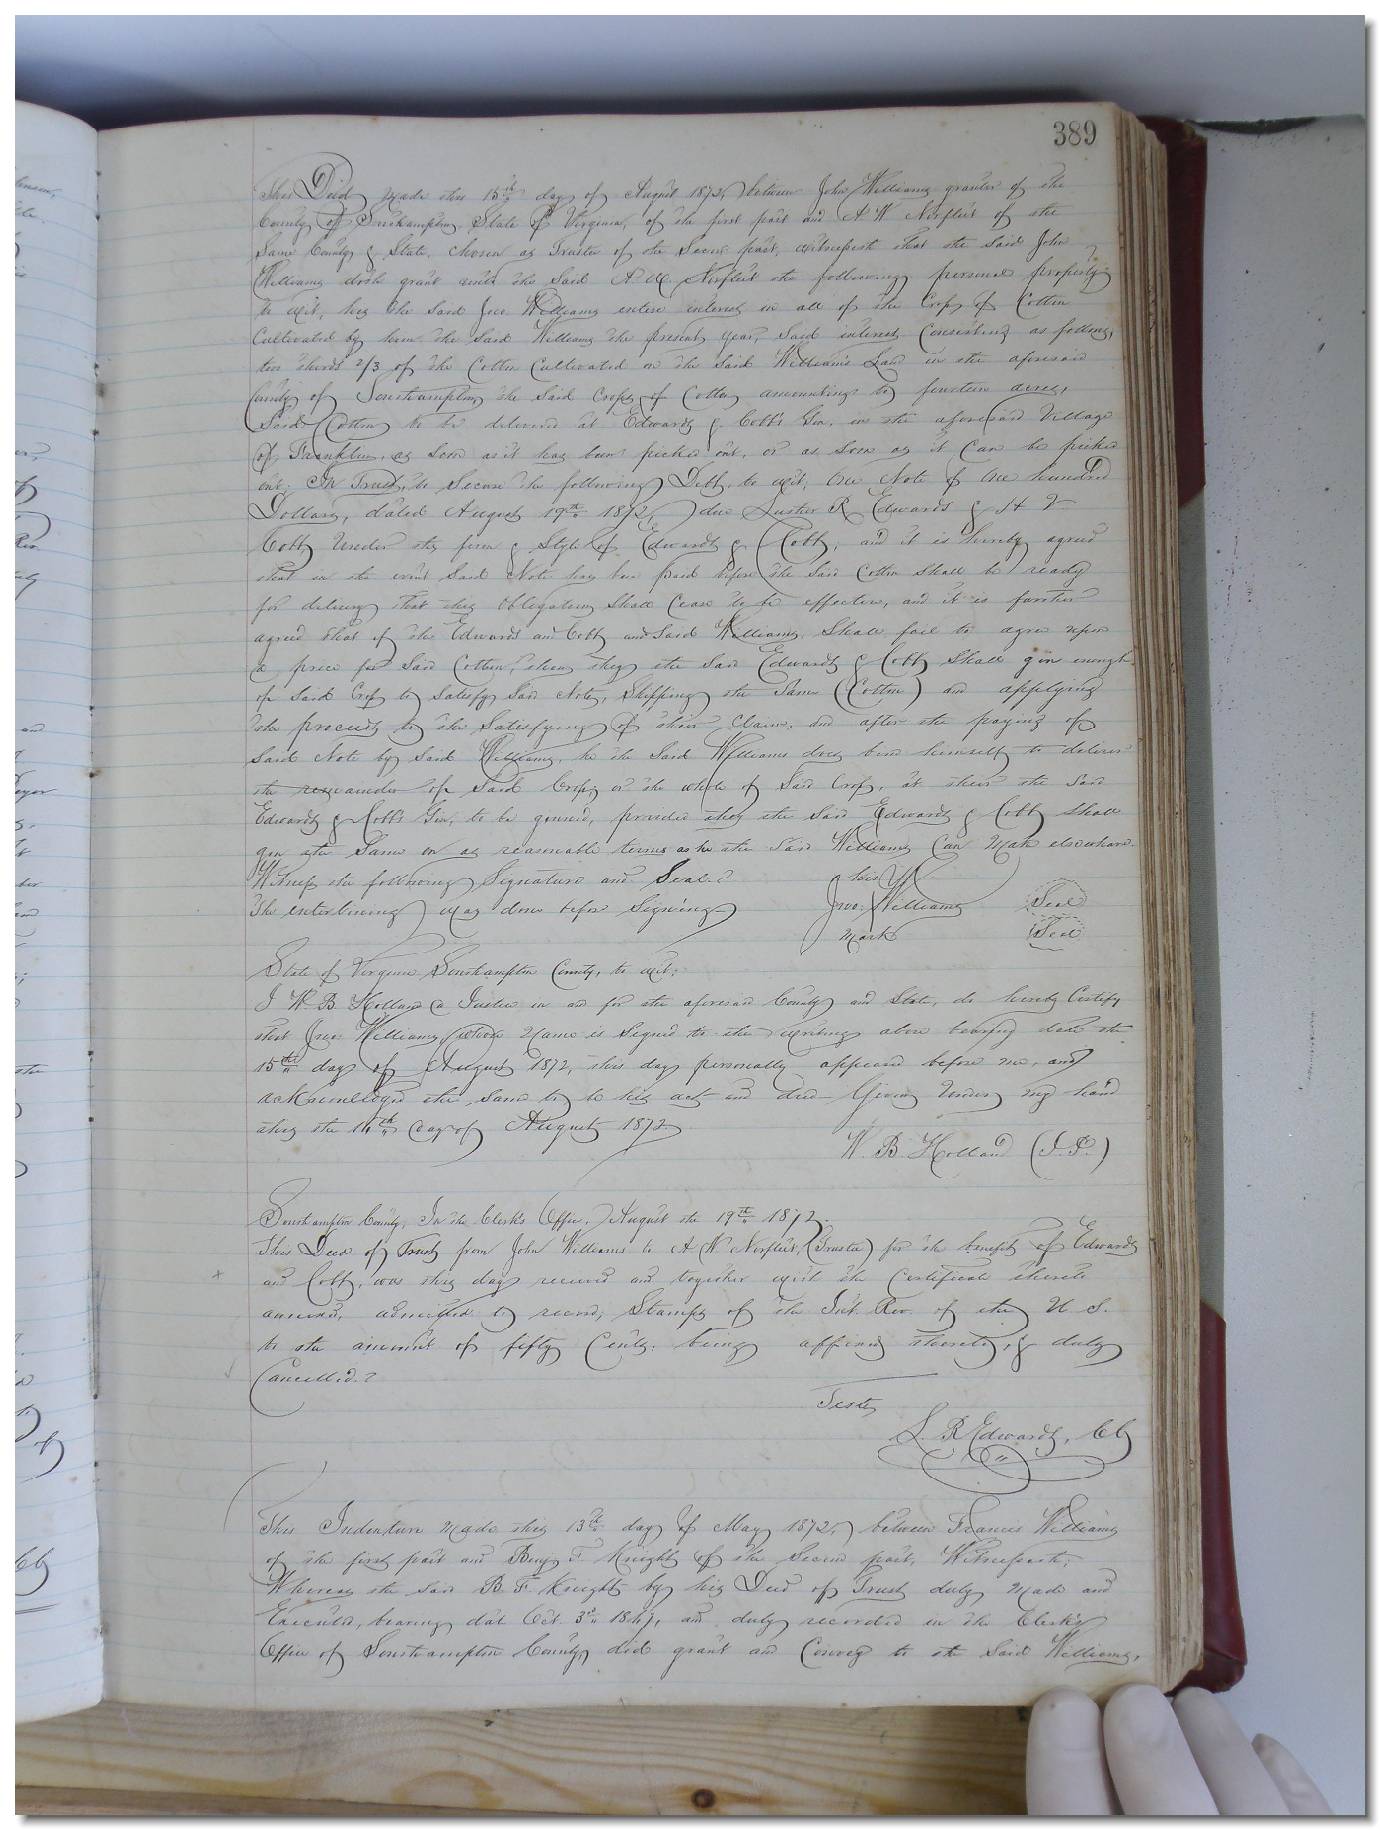 389
This Deed made this 15th day of August 1872, between John Williams grantor of the
County of Southampton State of Virginia, of the first part and A W Norfleet of the
Same County & State, chosen as Trustee of the Secon part, witnesseth that the said John
Williams doth grant unto the said A W Norfleet the following personal property
to wit, his the said Jno Williams entire interest in all of the Crop of Cotton
Cultivated by him the said Williams the present year, said interest Consisting as follows,
two thirds 2/3 of the Cotton Cultivated on the said Williams Land in the aforesaid
County of Southampton the said Crop of Cotton amounting to fourteen acres,
Said Cotton to be delivered at Edwards & Cobb's Gin, in the aforesaid Village
of Franklin, as soon as it has been picked out, or as soon as it Can be picked
out; In Trust, to Secure the following Debt, to wit, One Note of One hundred
Dollars, dated August 19th 1872, due Luther R Edwards & H V
Cobb Under the firm & Style of Edwards & Cobb, and it is hereby agreed
that in the event Said Note has been paid before the Said Cotton Shall be ready
for delivery that this Obligation Shall Cease to be effective, and it is further
agreed that if the Edwards and Cobb and Said Williams Shall fail to agree upon
a price for Said Cotton, then they the Said Edwards & Cobb Shall gin enough
of Said Crop to Satisfy Said Note, Shipping the Same (Cotton) and applying
the proceeds to the Satisfying of their Claim, and after the paying of
Said Note by Said Williams, he the Said Williams does bind himself to deliver
the remainder of Said Crop, or the whole of Said Crop, at their the Said
Edwards & Cobb's Gin, to be ginned, provided they the Said Edwards & Cobb Shall
gin the Same on as reasonable terms as he the Said Williams Can Make elsewhere.
Witness the following Signature and Seal.
his
The interlining was done before Signing
Jno. Williams Seal
mark Seal
State of Virginia Southampton County, to wit:
I W. B. Holland a Justice in and for the aforesaid County and State, do hereby Certify
that Jno. Williams, whose Name is Signed to the writing above bearing date the
15th day of August 1872, this day personally appeared before me, and
acknowledged the same to be his act and deed Given Under my hand
this the day of August 1872
W. B. Holland (J.P.)
Southampton County, In the Clerk's Office, August the 19th 1872.
This Deed of Trust from John Williams to A W Norfleet, (Trustee) for the benefit of Edwards
and Cobb, was this day received and together with the Certificate thereto
annexed, admitted to record, Stamps of the Int. Rev. of the U S.
to the amount of fifty Cents being affixed thereto, & duly
Cancelled.
Teste
L. R Edwards, CC
This Indenture Made this 13th day of May 1872, between Francis Williams
of the first part and Benj F Knight of the Second part, Witnesseth;
Whereas the said B. F. Knight by his Deed of Trust duly Made and
Executed, bearing date Oct. 3d and duly recorded in the Clerk's
Office of Southampton County, did grant and Convey to the Said Williams,